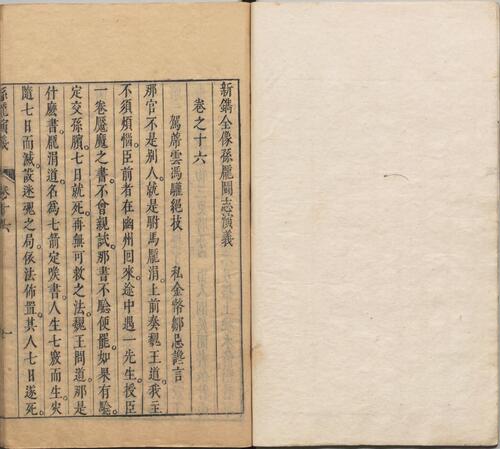 新鐫全像孫龐鬪志演義
卷之十六
駕蓆雲馮驩絕技　私金幣鄒忌讒言
那官不是別人。就是駙馬龐涓。上前奏魏王道我主
不須煩惱。臣前者在幽州回來。途中遇一先生授臣
一卷魘魔之書不曾親試。那書不驗便罷。如果有驗。
定交孫臏七日就死。再無可救之法。魏王問道。那是
什麽書。龐涓道。名為七箭定喉書。人生七竅而生灾
隨七日而滅。設迷魂之局。依法佈置。其人七日遂死。
孫龐演義　卷十六　一